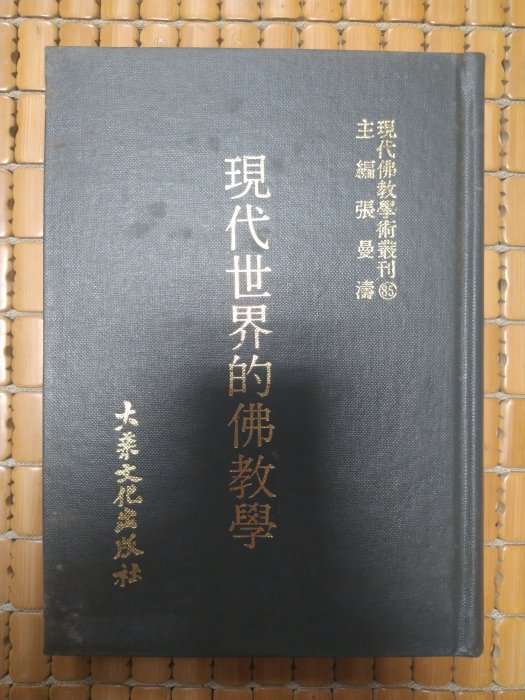 現代佛教學術叢刊85
主編張曼濤
現代世界的佛教學
大乘文化出版社